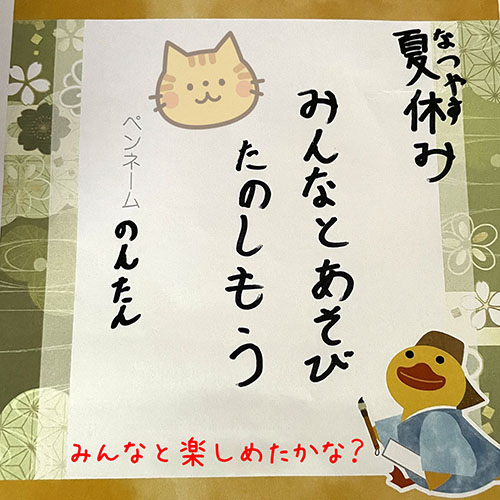 夏休み
なつやす
みんなとあそび
たのしもう
ペンネーム のんたん
みんなと楽しめたかな?